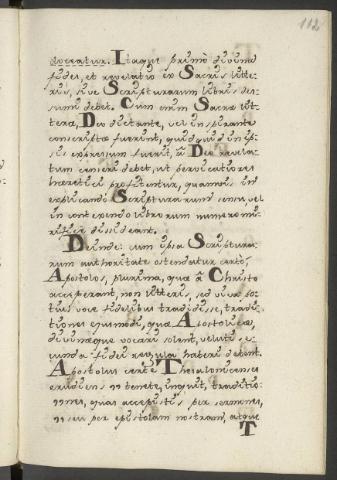 112
vocatur. Itaque primò divinæ
fidei, et revelatio ex Sacris litte-
ris, sive Scripturarum libris de-
sumi debet. Cum enim Sacræ lit-
teræ, Deo dictante, vel inspirante
conscriptæ fuerint, quidquid in ip-
sis expressum fuerit, à Deo revela-
tum censeri debet, ut
hæretici profitentur, quamvis in
explicando Scripturarum sensu, vel
in contexendo librorum numero mi-
rificè dissideant.
Deinde: cum ipsa Scriptura-
rum authoritate ostendatur certò,
Apostolos, plurima, quæ à Christo
acceperant, non litteris, sed viva so-
lùs voce fidelibus tradidisse, tradi-
tiones ejusmodi, quæ Apostolicæ,
divinæque vocari solent, veluti se-
cunda fidei regula haberi debent.
Apostolus certè Thessalonicenses
erudiens ,, tenete, inquit, traditio-
,, nes, quas accepistis per sermonem,
,, seu per epistolam nostram, atque
T